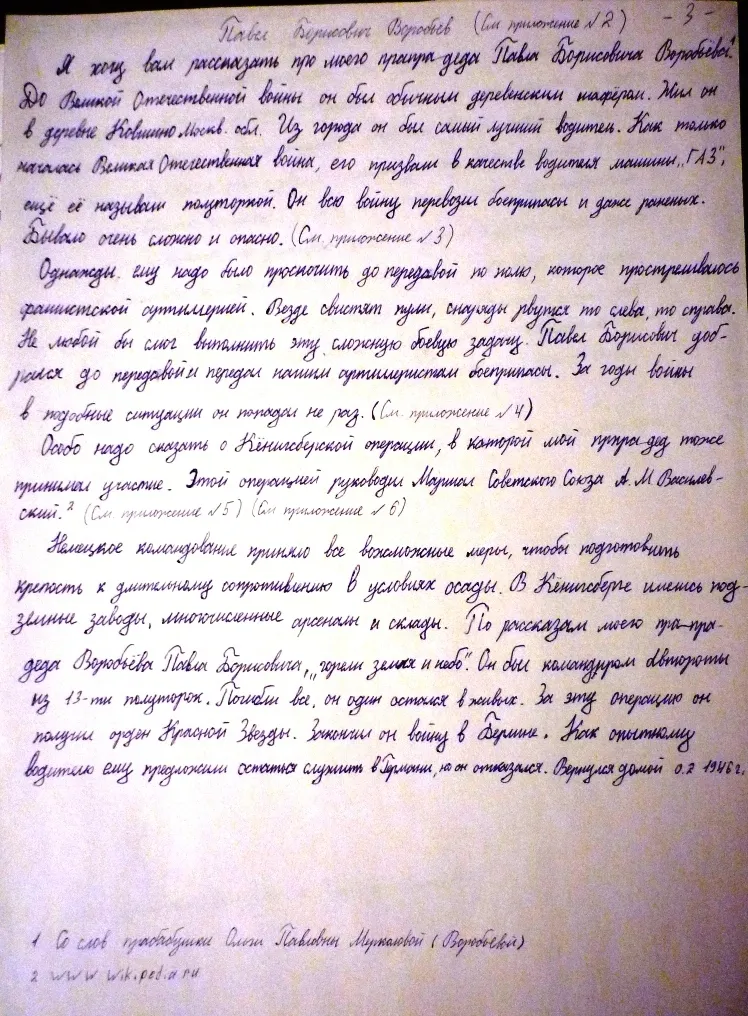 Павел Борисович Воробьёв (См приложение №2) - 3 -
Я хочу вам рассказать про моего прапра-деда Павла Борисовича Воробьёва¹.
До Великой Отечественной войны он был обычным деревенским шафёром. Жил он
в деревне Ковшино Москв. обл. Из города он был самый лучший водитель. Как только
началась Великая Отечественная война, его призвали в качестве водителя машины „ГАЗ",
ещё её называли полуторкой. Он всю войну перевозил боеприпасы и даже раненых.
Бывало очень сложно и опасно. (См. приложение №3)
Однажды ему надо было проскочить до передавой по полю, которое простреливалось
фашистской артиллерией. Везде свистят пули, снаряды рвутся то слева, то справа.
Не любой бы смог выполнить эту сложную боевую задачу. Павел Борисович доб-
рался до передавой и передал нашим артиллеристам боеприпасы. За годы войны
в подобные ситуации он попадал не раз. (См. приложение №4)
Особо надо сказать о Кёнигсберской операции, в которой мой прпра-дед тоже
принимал участие. Этой операцией руководил Маршал Советского Союза А. М Василев-
ский.² (См. приложение №5) (См приложение №6)
Немецкое командование приняло все возможные меры, чтобы подготовить
крепость к длительному сопротивлению в условиях осады. В Кёнигсберге имелись под-
земные заводы, многочисленные арсеналы и склады. По рассказам моего пра-пра-
деда Воробьёва Павла Борисовича, „горели земля и небо". Он был командиром автороты
из 13-ти полуторок. Погибли все, он один остался в живых. За эту операцию он
получил орден Красной Звезды. Закончил он войну в Берлине. Как опытному
водителю ему предложили остаться служить в Германи, но он отказался. Вернулся домой 0.2 1946 г.
1 Со слов прабабушки Ольги Павловны Меркаловой (Воробьёвой)
2 www wikipedia ru